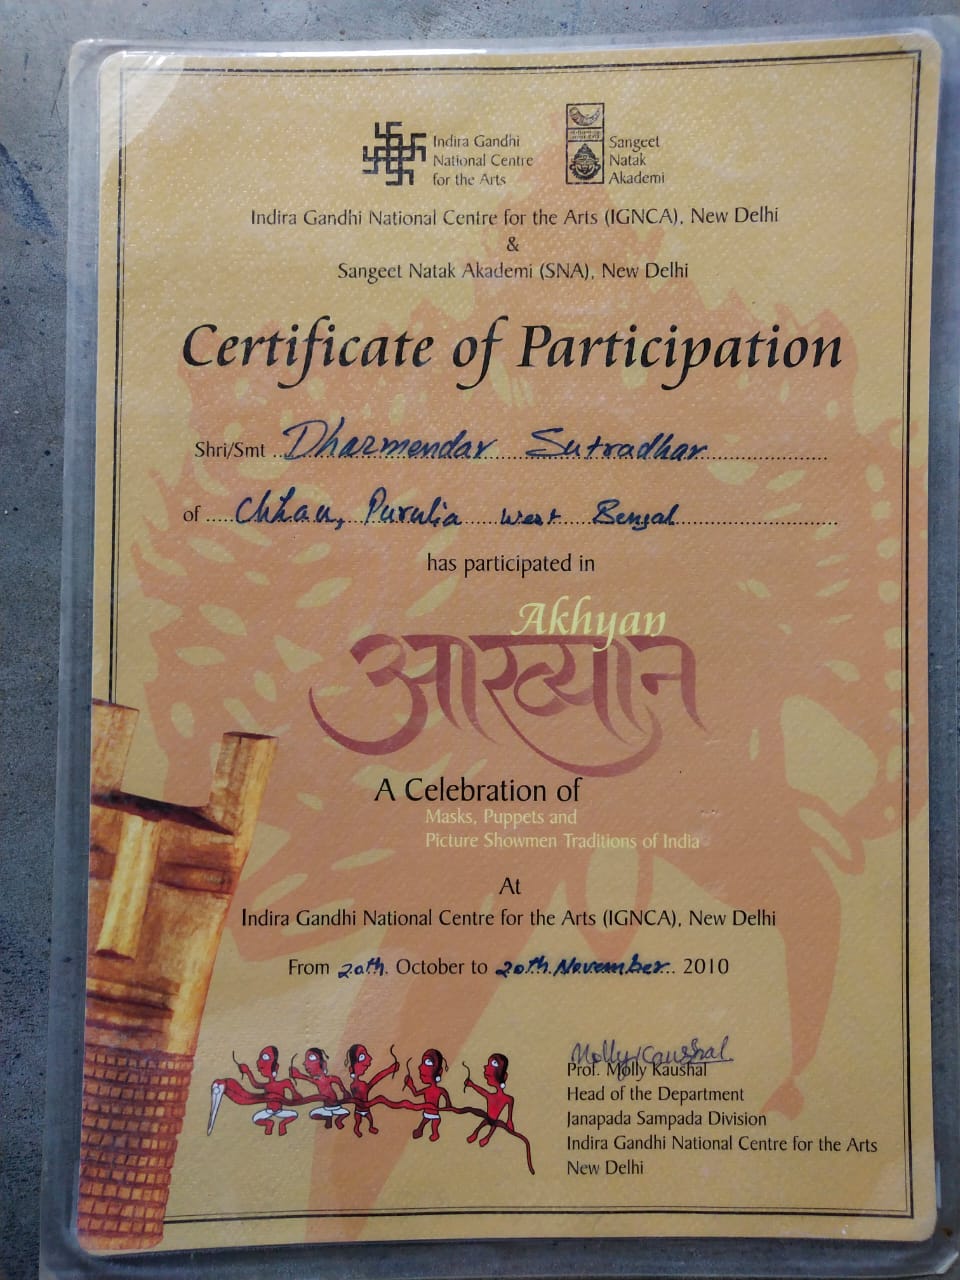 Indira Gandhi
National Centre
for the Arts
Sangeet
Natak
Akademi
Indira Gandhi National Centre for the Arts (IGNCA), New Delhi
&
Sangeet Natak Akademi (SNA), New Delhi
Certificate of Participation
Shri/Smt Dharmendar Sutradhar
of Chhau, Purulia West Bengal
has participated in
Akhyan
आख्यान
A Celebration of
Masks, Puppets and
Picture Showmen Traditions of India
At
Indira Gandhi National Centre for the Arts (IGNCA), New Delhi
From 20th October to 20th November 2010
Molly Kaushal
Prof. Molly Kaushal
Head of the Department
Janapada Sampada Division
Indira Gandhi National Centre for the Arts
New Delhi